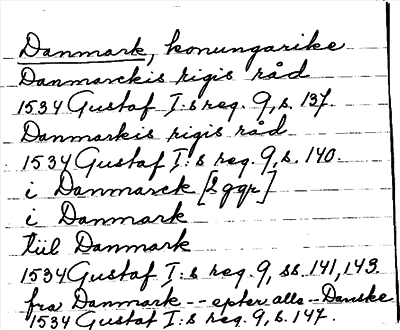 Danmark, konungarike
Danmarckis rigis råd
1534 Gustaf I:s reg. 9, s. 137.
Danmarkis rigis råd
1534 Gustaf I:s reg. 9, s. 140.
i Danmarck [2 ggr]
i Danmark
tiil Danmark
1534 Gustaf I:s reg. 9, ss. 141, 143.
fra Danmark -- epter alla -- Danske
1534 Gustaf I:s reg. 9, s. 147.